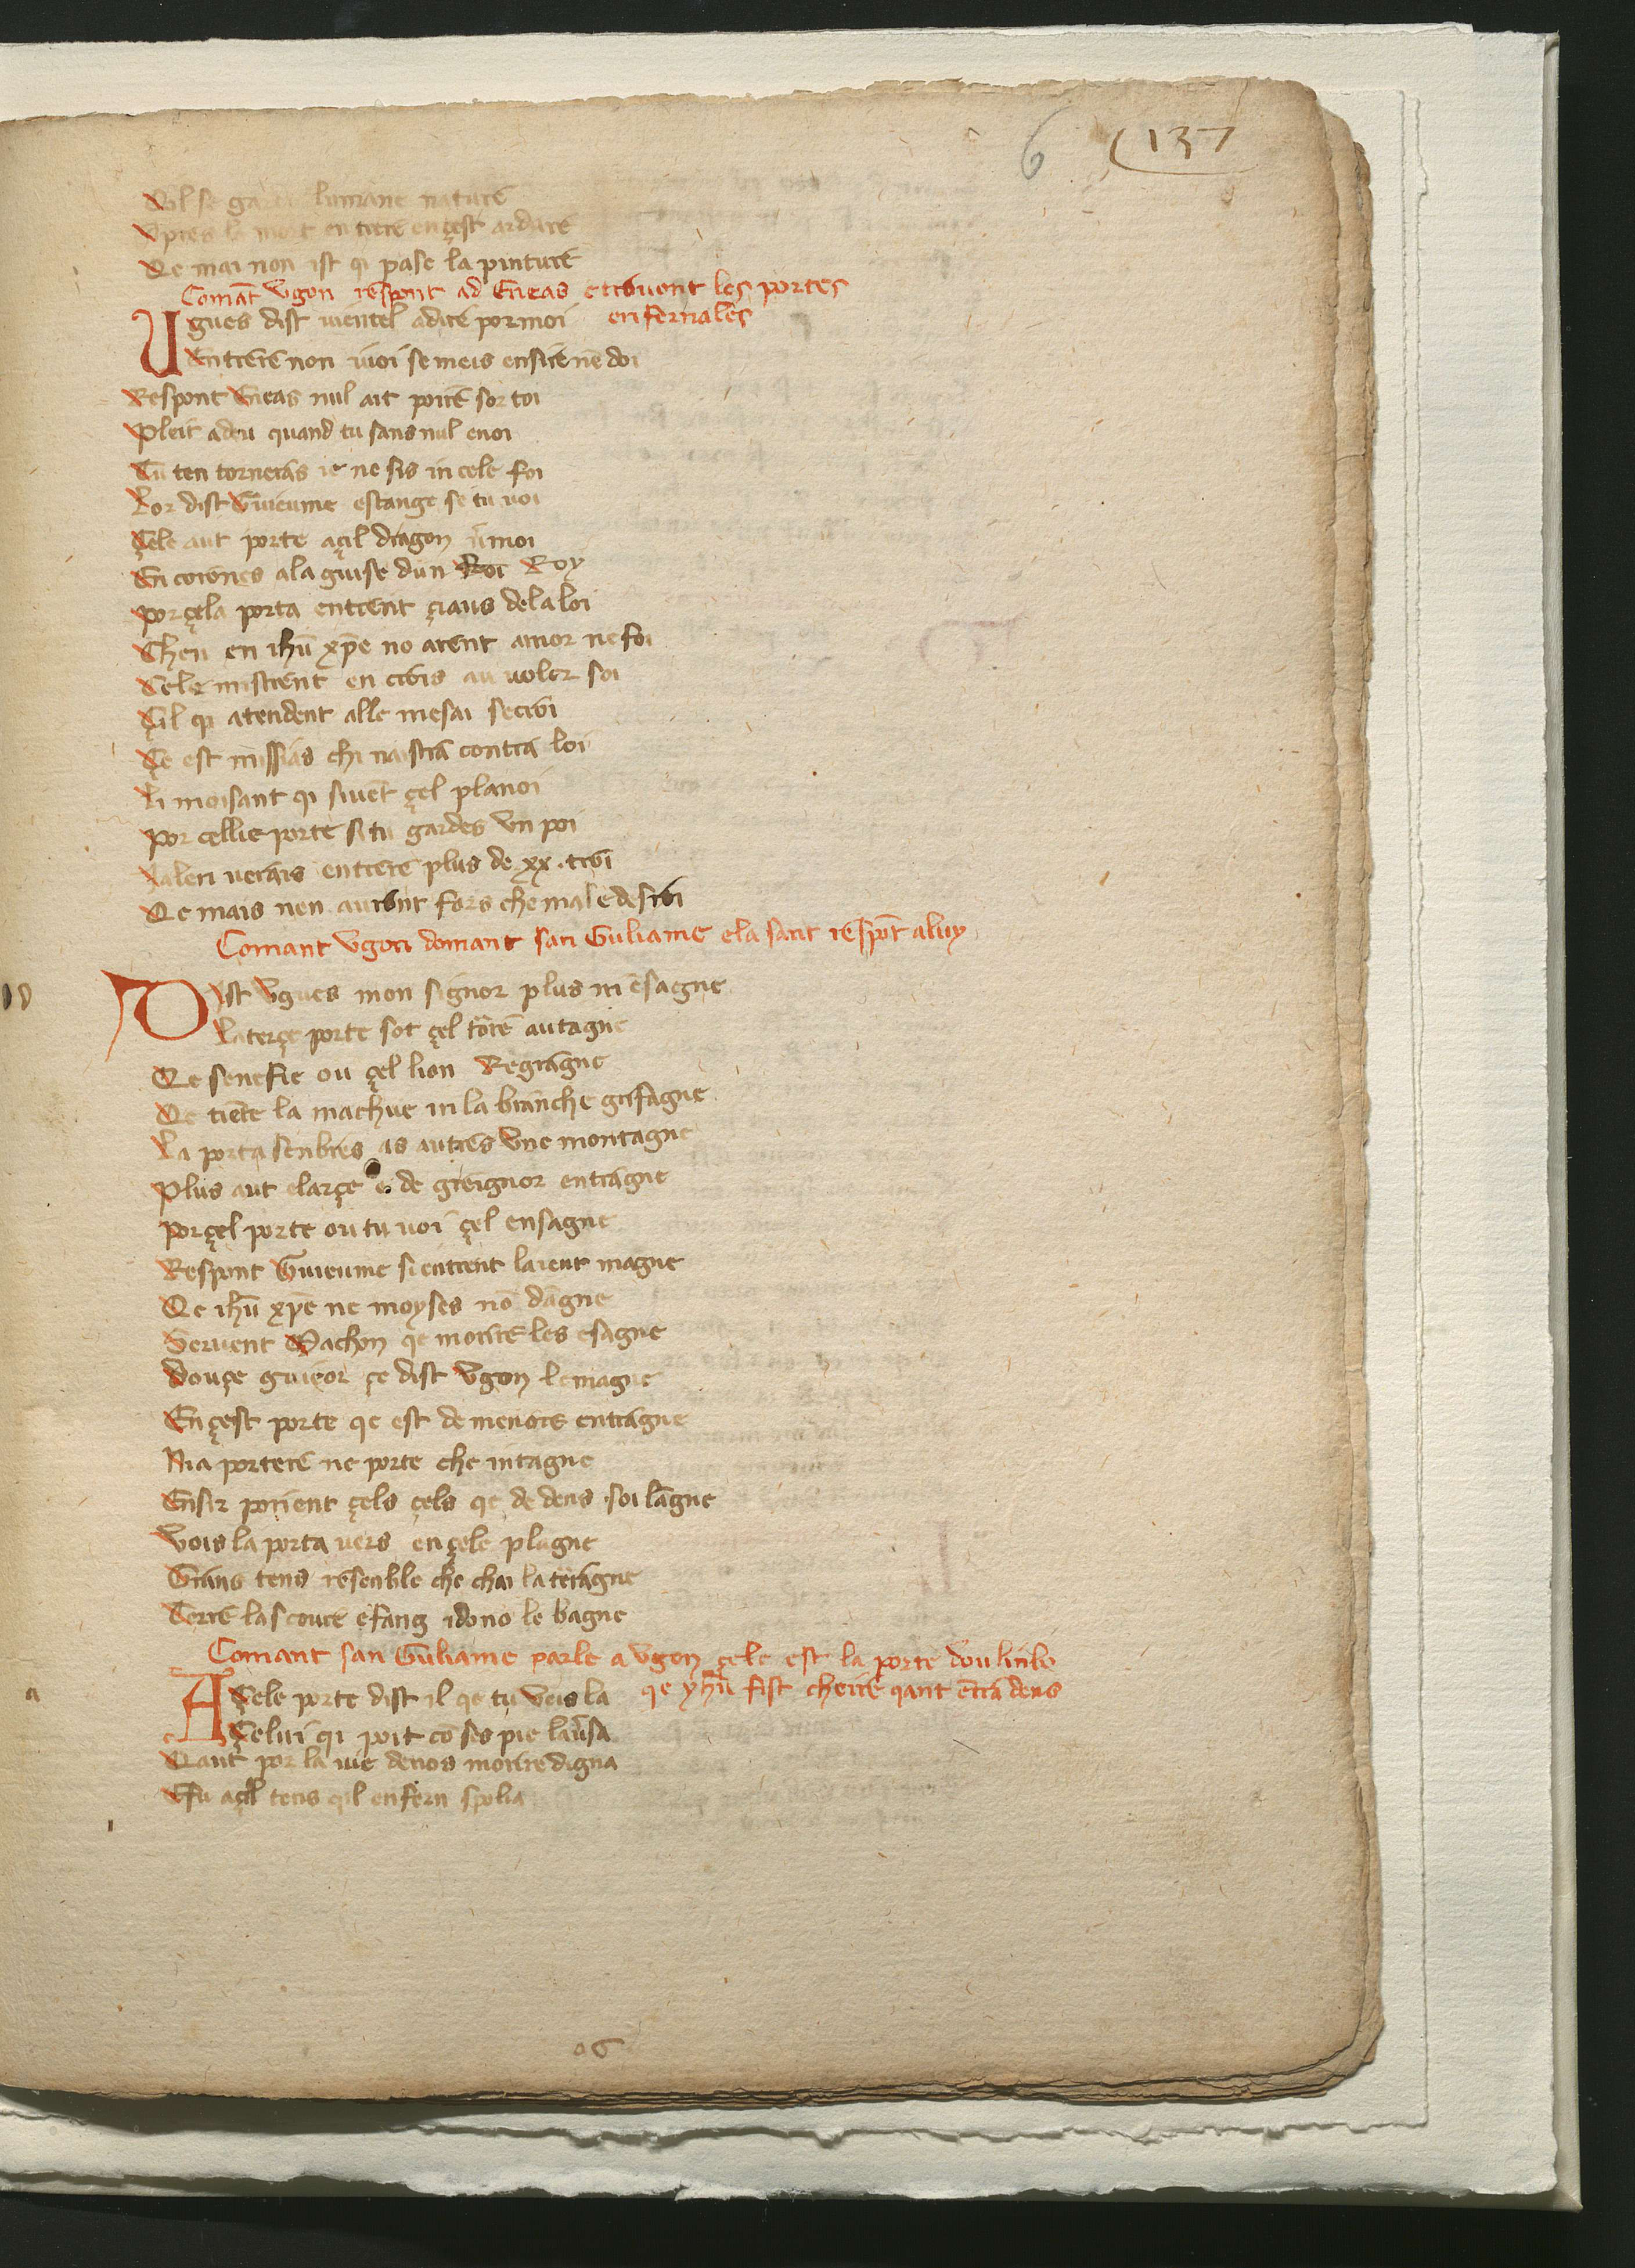 6 137
Vol se garde lumane nature
Apres la mort entrere en çest ardure
Qe mai non ist qi pase la pinture
Comāt Vgon respont ad Eneas e trovent les portes
enfernales
Ugues dist uientel a dire por moi
Entrere non uoi se meis ensire nē doi
Respont Eneas nul ait poire sor toi
Pleit a deu quand tu sans nul enoi
Tu ten torneras ie ne sis in cele foi
Lor dist Guieume estange se tu uoi
Çele aut porte a çil dragon u'moi
En corones a la guise dun Roi Roy
Por çela porta entrent çiaus de la loi
Chen en ihū xp̄e no arent amor ne foi
Cele mistrent en crois au voler soi
Çil qi atendent alle mesai secroi
Çe est missias chi naistra contra loi
Li moisant qi siuēt çel planoi
Por cellie porte si tu gardes vn poi
Laleri uerais entrere plus de xx . troi
Qe mais nen auront fors che male desroi
Comant Vgon domant san Guliame e la sant respōt a luy
Dist Vgues mon signor plus m ensagne
La terçe porte sot çel torē autagne
Qe senefie ou çel lion Regragne
Qe tiente la machue in la branche grifagne
La porta senbres as autres vne montagne
Plus aut e large e de greignor entragne
Por çel porte ou tu uoi çel ensagne
Respont Guieume si entrent laieut magne
Qe ihū xp̄e ne moyses nō dāgne
Seruent Machon qe morire les esagne
Douçe guieor çe dist Vgon le magne
En çest porte qe est de menors entragne
Nia porterē ne porte che intagne
Ensir porient çels çels qe de dens soi lāgne
Vois la porta uers en çele plagne
Grans tens resenble che chai la teragne
Terre lascoure e fang i dono le bagne
Comant san Guliame parle a Vgon çele est la porte dou linbo
qe yhū fist cheire qant ētra dens
A Çele porte dist il qe tu veis la
Çelui qi poit cō ses pie lau'sa
Qant por la uie de nos morire digna
E fu a çil tens qil enfern spolia